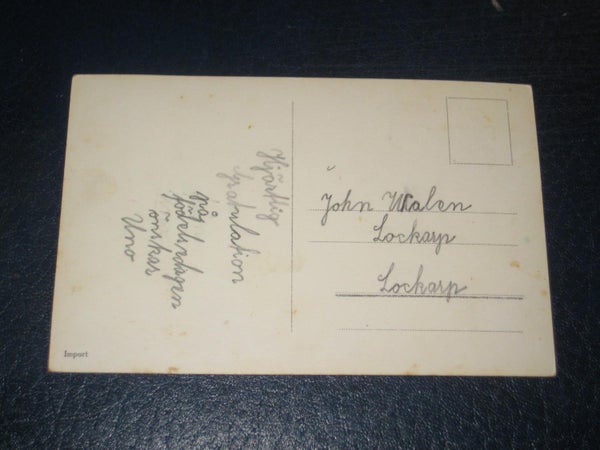 Hjärtlig
gratulation
på
födelsedagen
önskar
Uno
John Walen
Lockarp
Lockarp
Import